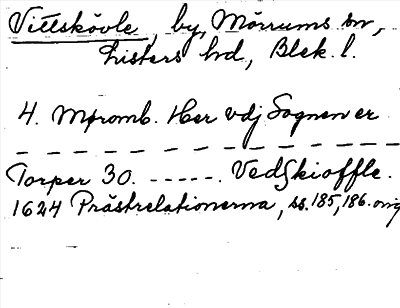 Vittskövle, by, Mörrums sn,
Listers hd, Blek. l.
4. Møromb. Her vdj Sognen er
— — — — — — — — — — — — — —
Torper 30. ----- . Vedskioffle.
1624 Prästrelationerna, ss. 185, 186. orig